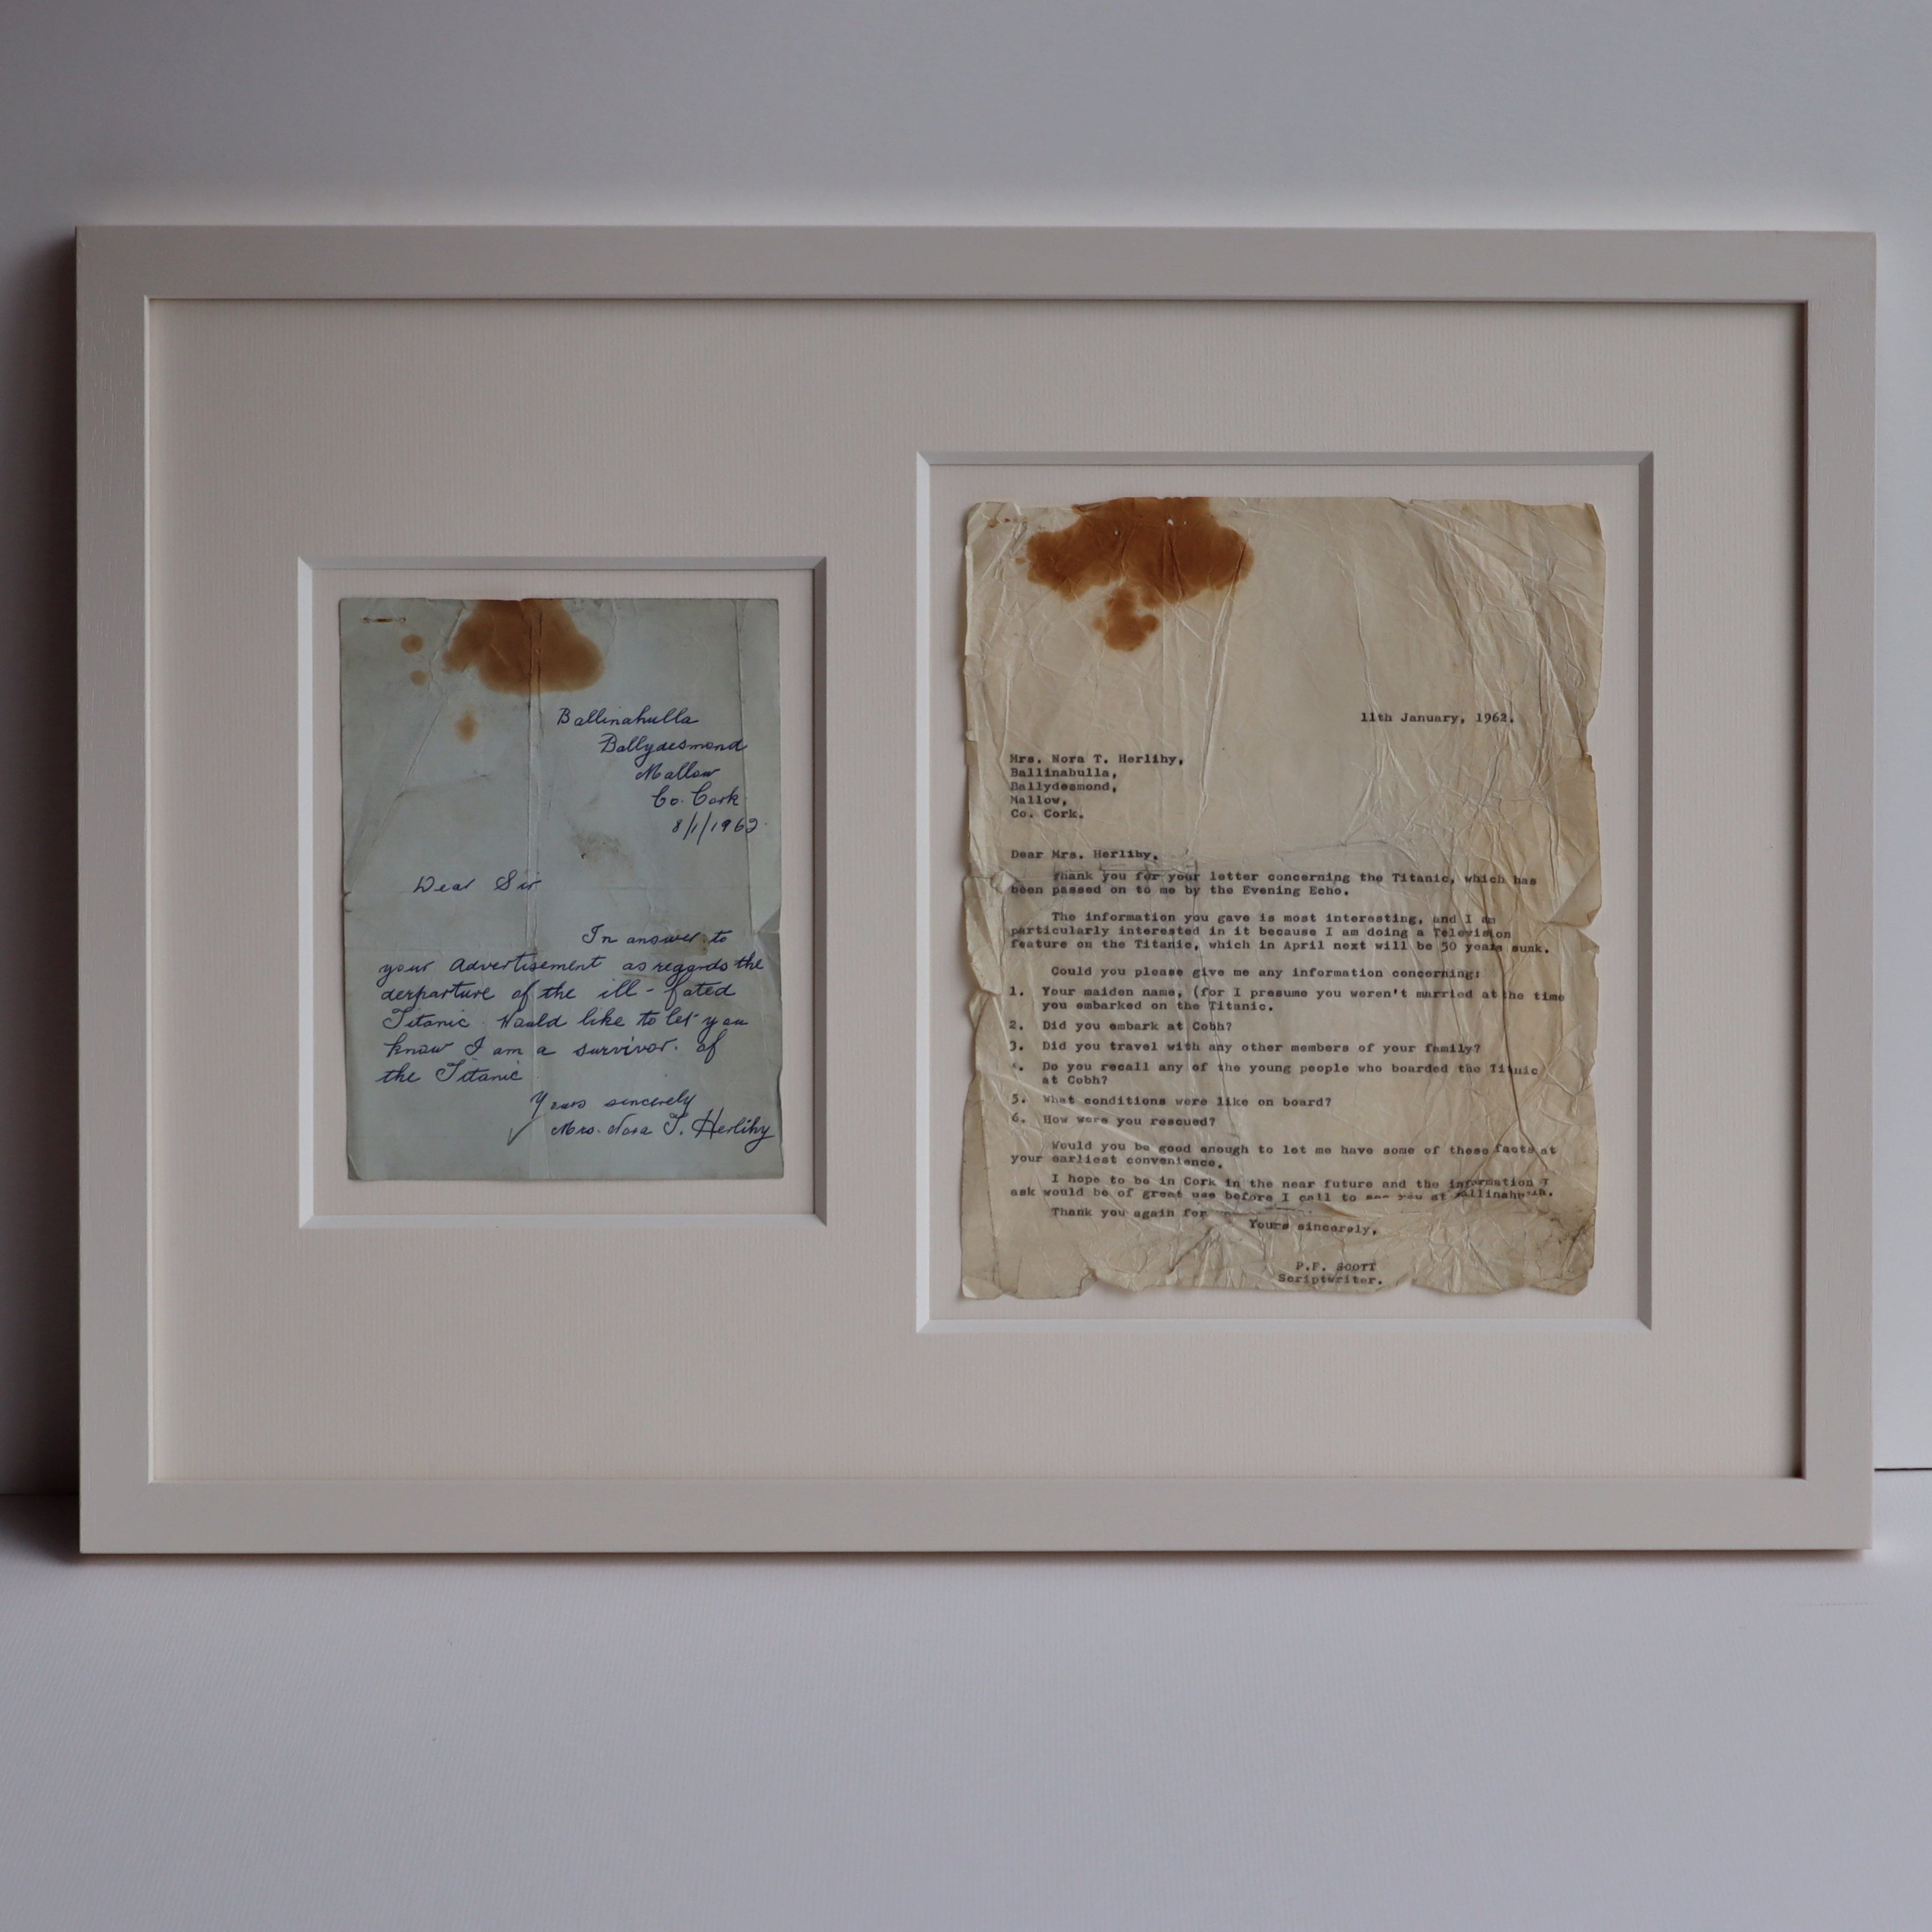 Ballinahulla
Ballydesmond
Mallow
Co. Cork
8/1/1962.
Dear Sir
In answer to
your Advertisement as regards the
derparture of the ill-fated
Titanic. Would like to let you
know I am a survivor. of
the Titanic
Yours sincerely
Mrs. Nora T. Herlihy
11th January, 1962.
Mrs. Nora T. Herlihy,
Ballinahulla,
Ballydesmond,
Mallow,
Co. Cork.
Dear Mrs. Herlihy,
Thank you for your letter concerning the Titanic, which has
been passed on to me by the Evening Echo.
The information you gave is most interesting, and I am
particularly interested in it because I am doing a Television
feature on the Titanic, which in April next will be 50 years sunk.
Could you please give me any information concerning:
1. Your maiden name, (for I presume you weren't married at the time
you embarked on the Titanic.
2. Did you embark at Cobh?
3. Did you travel with any other members of your family?
4. Do you recall any of the young people who boarded the Titanic
at Cobh?
5. What conditions were like on board?
6. How were you rescued?
Would you be good enough to let me have some of these facts at
your earliest convenience.
I hope to be in Cork in the near future and the information I
ask would be of great use before I call to see you at Ballinahulla.
Thank you again for
Yours sincerely,
P.F. SCOTT
Scriptwriter.